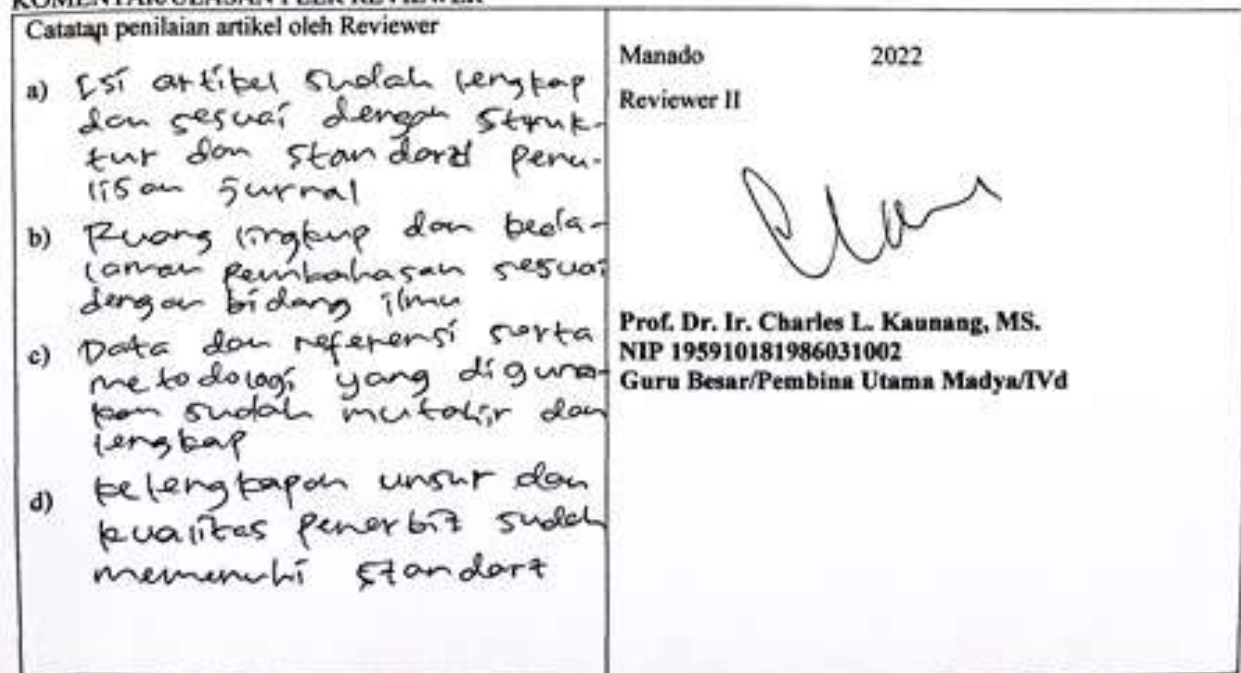 KOMENTAR/ULASAN PEER REVIEWER
Catatan penilaian artikel oleh Reviewer
a) Isi artikel sudah lengkap
dan sesuai dengan struk-
tur dan standard penu-
lisan jurnal
b) Ruang lingkup dan keda-
laman pembahasan sesuai
dengan bidang ilmu
c) Data dan referensi serta
metodologi yang diguna-
kan sudah mutahir dan
lengkap
d) kelengkapan unsur dan
kualitas penerbit sudah
memenuhi standart
Manado 2022
Reviewer II
Prof. Dr. Ir. Charles L. Kaunang, MS.
NIP 195910181986031002
Guru Besar/Pembina Utama Madya/IVd